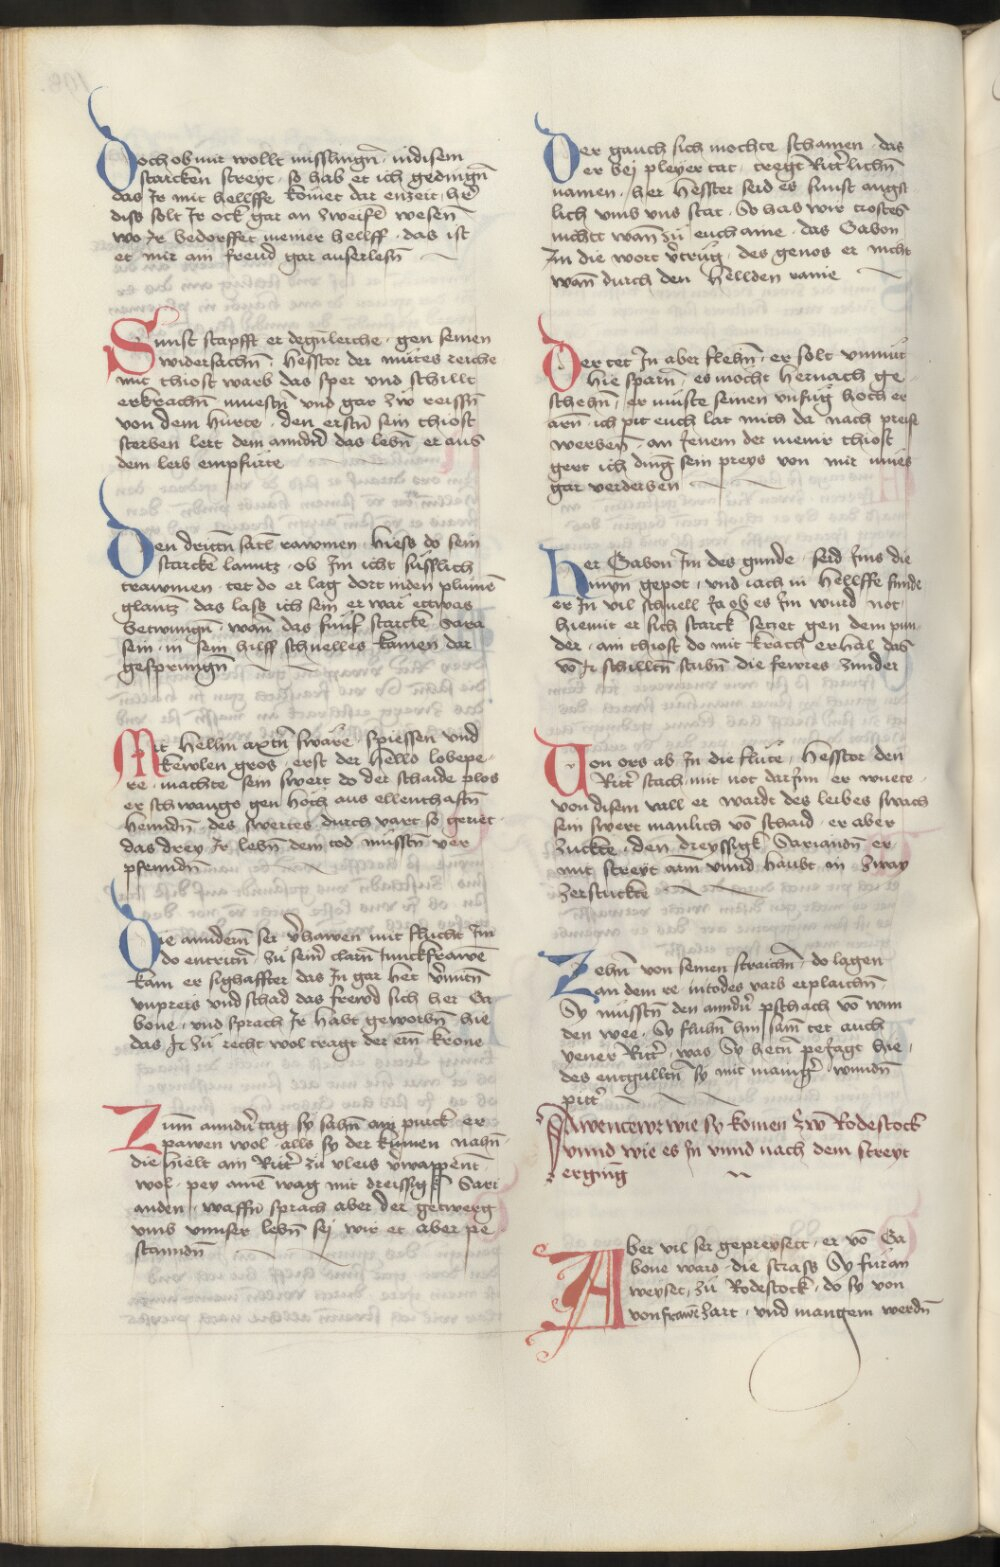 Doch ob mir wollt misslingñ · in disem
starcken streyt · so hab et ich gedingñ
das Ir mit hellffe kömet dar enzeit · hr̃
diss solt Ir ock gar an zweifel wesenn
wo Ir bedorffet meiner hellff · das ist
et mir am freud gar auserlesñ
Sunst stapfft er degenleiche · gen seinen
widersachñ · Hesstor der mütes reiche
mit thiost warb das sper vnd schillt
erkrachñ muestñ vnd gar zw reissñ
von dem hurte · den erstñ sein thiost
sterben lert dem anndñ das lebñ er aus
dem leib empfürte
Den drittñ satl rawmen · hiess do sein
starcke lanntz · ob Im icht süsslich
trawmen · tet do er lag dort inden plümē
glantz das lass ich sein er war ettwas
betwungñ · wañ das fünf starcke Sara
sein · in sein hilff schnelles kamen dar
gesprungñ
Mit hellm axtñ swäre · spiessen vnd
kewlen gros · erst der hello lobepe
re · machte sein swert do der schaide plos
er schwango gen hoch aus ellenthaftñ
henndñ · des swertes · durch vart so geriet ·
das drey Ir lebñ dem tod müsstñ ver
pfenndñ
Die anndern ser v̄hawen mit flucht Im
do entritñ · zu seiner clarñ Junckfrawē
kam er sighaffter das In gar het v̄mitñ
vnpreis vnd schad das frewd sich her Ga
bone · vnd sprach Ir habt geworbñ hie
das Ir zü recht wol tragt der ern̄ krone
Zum anndr̄ tag sy sahñ ain purck er
pawen wol · alls sy der kumen nahñ
die hielt ain Ritr̄ zu vleis v̄wappent
wol · pey ainē wag mit dreissigk Sari
anden · waffñ sprach aber der getwerg
vmb vnnser lebñ sej wir et aber pe
stanndñ
Der gauch sich mochte schamen · das
er bej pleyer tat · tregt Ritr̄lichñ
namen · her Hesstor seid es sunst angst
lich vmb vns stat · So hab wir trostes
nichtt wañ zü euch aine · das Gabon
In die wort v̄trug · des genos er nicht
wañ durch den hellden raine
Der tet In aber flehñ · er solt vnmüt
hie sparñ · es mocht hernach ge
schehñ · er müste seinen vnfüg hoch er
arñ · ich pit euch lat mich da nach preise
werben · an Jenem der meinr thiost
gert ich ding sein preys von mir mües
gar verderben
Her Gabon Im des gunde · seid Ims die
mȳn gepot · vnd iach in hellffe finde
er In vil schnell Ja ob es Im wurd not
hiemit er sich starck setzet gen dem pun
der · ain thiost do mit krach erhal das
vō Ir schilltñ stubñ die fewres zunder
Von ors ab In die flüte · Hesstor den
Ritr̄ stach · mit not dar Inn er wuete ·
von disem vall er wardt des leibes swach
sein swert manlich vō schaid · er aber
zuckte · den dreyssigk Sarianndñ er
mit streyt arm vnnd haubt an zway
zerstuckte
Zehñ von seinen straichñ · do lagen
an dem re · in todes varb erplaichñ
Sy müsstñ den anndr̄ pschach vō wun
den wee · Sy fluhñ hin sam tet auch
yener Ritr̄ · was Sy hetñ peJagt hie ·
des entgulltñ sy mit manigr̄ wundñ
pittr̄
Awentewr wie sy komen zw̄ Rodestock
vnnd wie es In vnnd nach dem streyt
erging
Aber vil ser gepreysett · er vō Ga
bone ward · die strass Sy füran
weyset · zü Rodestock · do sy von
von frawē zart · vnd mangem werdñ